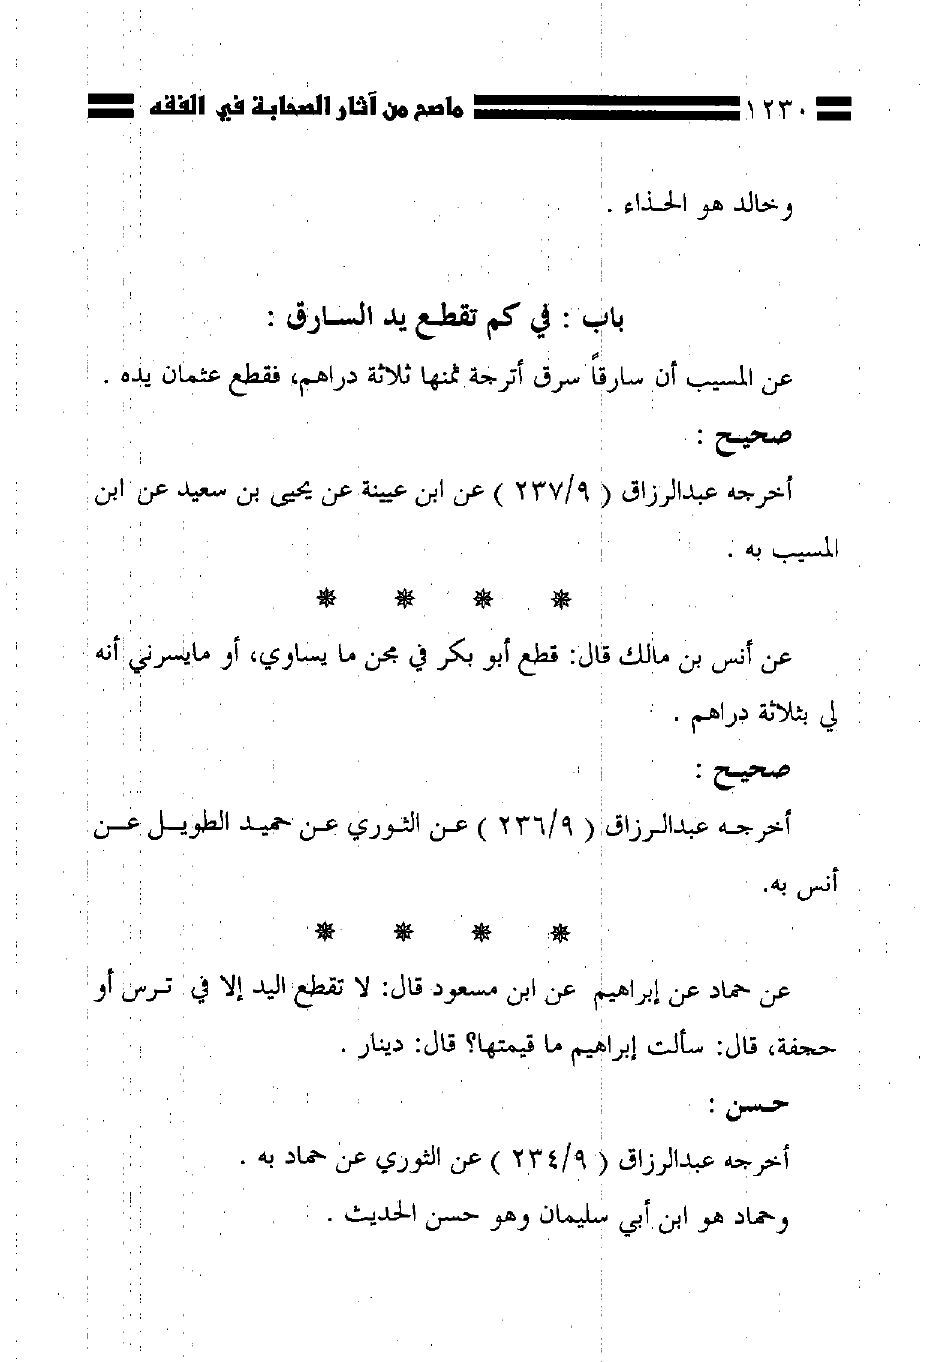 ١٢٣٠ ماصح من آثار الصحابة في الفقه
وخالد هو الحذاء .
باب : في كم تقطع يد السارق :
عن المسيب أن سارقاً سرق أترجة ثمنها ثلاثة دراهم، فقطع عثمان يده .
صحيح :
أخرجه عبدالرزاق ( ٢٣٧/٩ ) عن ابن عيينة عن يحيى بن سعيد عن ابن
المسيب به .
عن أنس بن مالك قال: قطع أبو بكر في مجن ما يساوي، أو مايسرني أنه
لي بثلاثة دراهم .
صحيح :
أخرجه عبدالرزاق ( ٢٣٦/٩ ) عن الثوري عن حميد الطويل عن
أنس به.
عن حماد عن إبراهيم عن ابن مسعود قال: لا تقطع اليد إلا في ترس أو
حجفة، قال: سألت إبراهيم ما قيمتها؟ قال: دينار .
حسن :
أخرجه عبدالرزاق ( ٢٣٤/٩ ) عن الثوري عن حماد به .
وحماد هو ابن أبي سليمان وهو حسن الحديث .